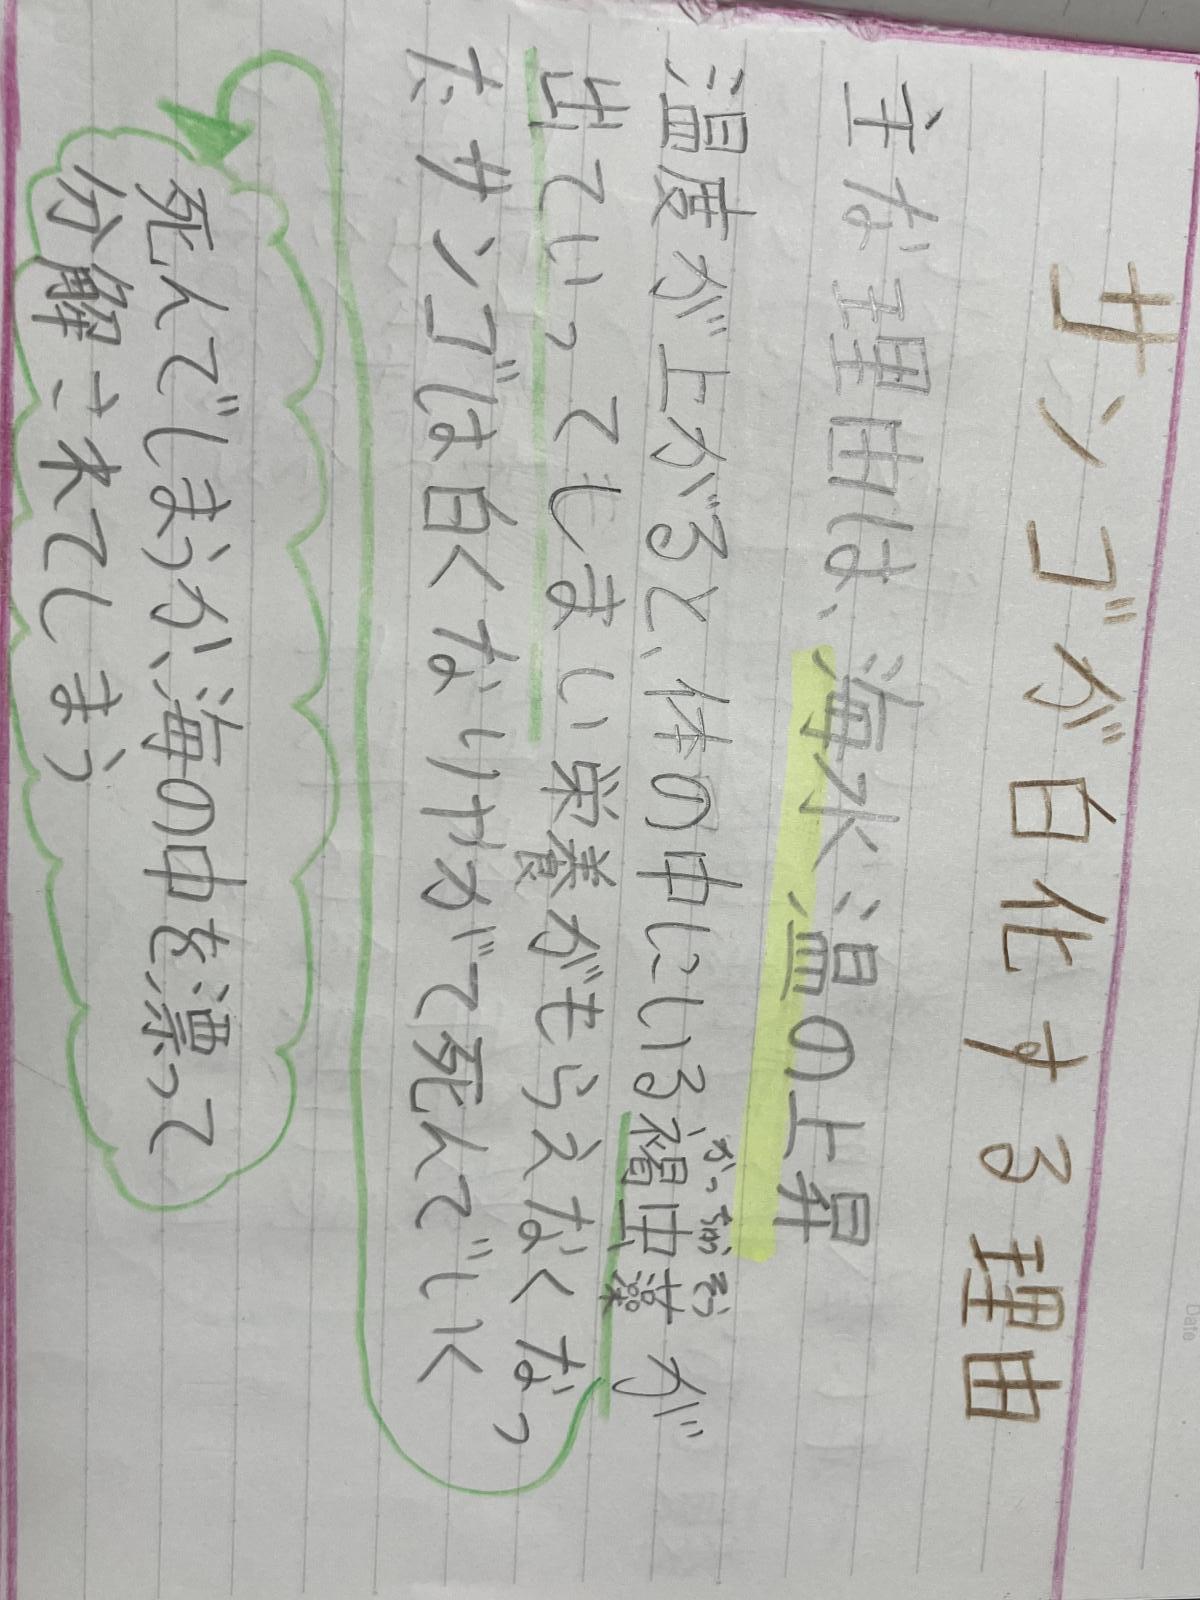 サンゴが白化する理由
主な理由は、海水温の上昇
温度が上がると、体の中にいる褐虫藻が
かっちゅうそう
出ていってしまい栄養がもらえなくなっ
たサンゴは白くなりやがて死んでいく
死んでしまうか、海の中を漂って
分解されてしまう
Date